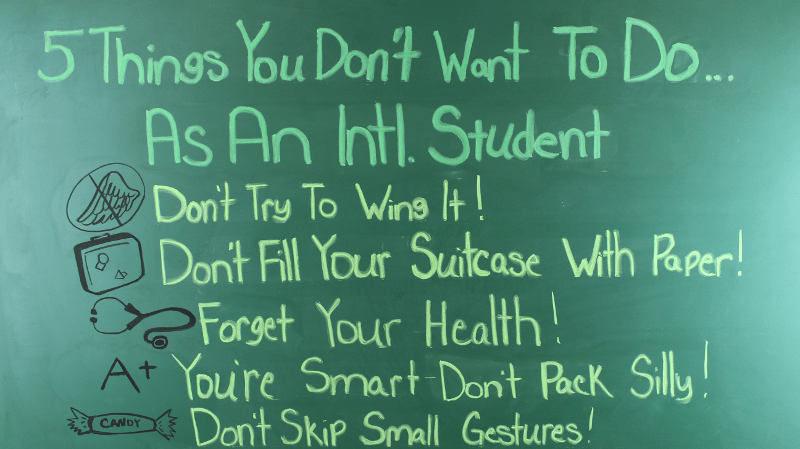 5 Things You Don't Want To Do...
As An Intl. Student
Don't Try To Wing It!
Don't Fill Your Suitcase With Paper!
Forget Your Health!
A+ You're Smart-Don't Pack Silly!
CANDY Don't Skip Small Gestures!